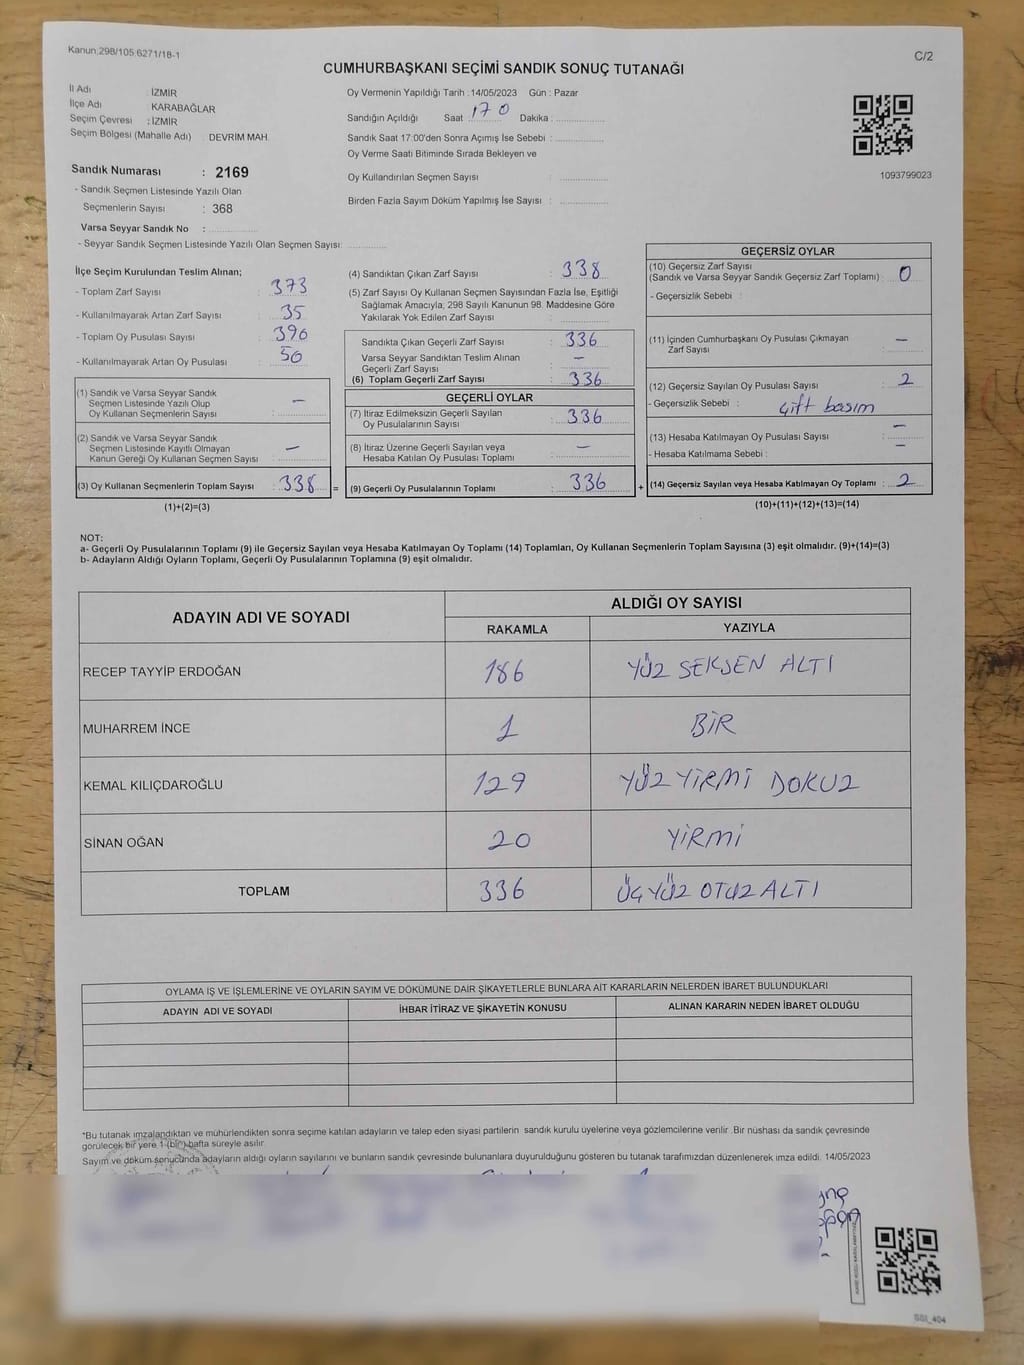 Kanun;298/105 6271/18-1
C/2
CUMHURBAŞKANI SEÇİMİ SANDIK SONUÇ TUTANAĞI
İl Adı : İZMİR
İlçe Adı : KARABAĞLAR
Seçim Çevresi : İZMİR
Seçim Bölgesi (Mahalle Adı) : DEVRİM MAH.
Sandık Numarası : 2169
- Sandık Seçmen Listesinde Yazılı Olan
Seçmenlerin Sayısı : 368
Varsa Seyyar Sandık No :
- Seyyar Sandık Seçmen Listesinde Yazılı Olan Seçmen Sayısı:
Oy Vermenin Yapıldığı Tarih :14/05/2023 Gün : Pazar
Sandığın Açıldığı Saat 17 0 Dakika :
Sandık Saat 17:00'den Sonra Açımış İse Sebebi :
Oy Verme Saati Bitiminde Sırada Bekleyen ve
Oy Kullandırılan Seçmen Sayısı :
Birden Fazla Sayım Döküm Yapılmış İse Sayısı :
1093799023
İlçe Seçim Kurulundan Teslim Alınan;
- Toplam Zarf Sayısı : 373
- Kullanılmayarak Artan Zarf Sayısı : 35
- Toplam Oy Pusulası Sayısı : 396
- Kullanılmayarak Artan Oy Pusulası : 56
(1) Sandık ve Varsa Seyyar Sandık
Seçmen Listesinde Yazılı Olup
Oy Kullanan Seçmenlerin Sayısı : –
(2) Sandık ve Varsa Seyyar Sandık
Seçmen Listesinde Kayıtlı Olmayan
Kanun Gereği Oy Kullanan Seçmen Sayısı : –
(3) Oy Kullanan Seçmenlerin Toplam Sayısı : 338 =
(1)+(2)=(3)
(4) Sandıktan Çıkan Zarf Sayısı : 338
(5) Zarf Sayısı Oy Kullanan Seçmen Sayısından Fazla İse, Eşitliği
Sağlamak Amacıyla, 298 Sayılı Kanunun 98. Maddesine Göre
Yakılarak Yok Edilen Zarf Sayısı :
Sandıkta Çıkan Geçerli Zarf Sayısı : 336
Varsa Seyyar Sandıktan Teslim Alınan
Geçerli Zarf Sayısı : –
(6) Toplam Geçerli Zarf Sayısı : 336
GEÇERLİ OYLAR
(7) İtiraz Edilmeksizin Geçerli Sayılan
Oy Pusulalarının Sayısı : 336
(8) İtiraz Üzerine Geçerli Sayılan veya
Hesaba Katılan Oy Pusulası Toplamı : –
(9) Geçerli Oy Pusulalarının Toplamı : 336 +
GEÇERSİZ OYLAR
(10) Geçersiz Zarf Sayısı
(Sandık ve Varsa Seyyar Sandık Geçersiz Zarf Toplamı) : 0
- Geçersizlik Sebebi :
(11) İçinden Cumhurbaşkanı Oy Pusulası Çıkmayan
Zarf Sayısı : –
(12) Geçersiz Sayılan Oy Pusulası Sayısı : 2
- Geçersizlik Sebebi : çift basım
(13) Hesaba Katılmayan Oy Pusulası Sayısı : –
- Hesaba Katılmama Sebebi : –
(14) Geçersiz Sayılan veya Hesaba Katılmayan Oy Toplamı : 2
(10)+(11)+(12)+(13)=(14)
NOT:
a- Geçerli Oy Pusulalarının Toplamı (9) ile Geçersiz Sayılan veya Hesaba Katılmayan Oy Toplamı (14) Toplamları, Oy Kullanan Seçmenlerin Toplam Sayısına (3) eşit olmalıdır. (9)+(14)=(3)
b- Adayların Aldığı Oyların Toplamı, Geçerli Oy Pusulalarının Toplamına (9) eşit olmalıdır.
ADAYIN ADI VE SOYADI
ALDIĞI OY SAYISI
RAKAMLA YAZIYLA
RECEP TAYYİP ERDOĞAN 186 YÜZ SEKSEN ALTI
MUHARREM İNCE 1 BİR
KEMAL KILIÇDAROĞLU 129 YÜZ YİRMİ DOKUZ
SİNAN OĞAN 20 YİRMİ
TOPLAM 336 ÜÇ YÜZ OTUZ ALTI
OYLAMA İŞ VE İŞLEMLERİNE VE OYLARIN SAYIM VE DÖKÜMÜNE DAİR ŞİKAYETLERLE BUNLARA AİT KARARLARIN NELERDEN İBARET BULUNDUKLARI
ADAYIN ADI VE SOYADI İHBAR İTİRAZ VE ŞİKAYETİN KONUSU ALINAN KARARIN NEDEN İBARET OLDUĞU
*Bu tutanak imzalandıktan ve mühürlendikten sonra seçime katılan adayların ve talep eden siyasi partilerin sandık kurulu üyelerine veya gözlemcilerine verilir .Bir nüshası da sandık çevresinde
görülecek bir yere 1 (bir) hafta süreyle asılır.
Sayım ve döküm sonucunda adayların aldığı oyların sayılarını ve bunların sandık çevresinde bulunanlara duyurulduğunu gösteren bu tutanak tarafımızdan düzenlenerek imza edildi. 14/05/2023